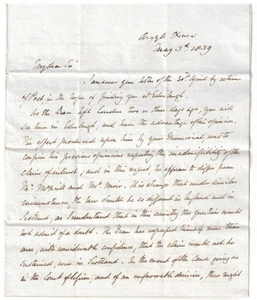 Argyll House
May 3rd 1839
My dear Sir
I answer your letter of the 30th April by return
of Post in the hope of finding you at Edinburgh.
As the Dean left London two or three days ago, you will
see him in Edinburgh, and have the advantage of his opinion.
The effect produced upon him by your Memorial, was to
confirm his previous opinions respecting the inadmissibility of the
claim of interest; and in this respect he appears to differ from
Mr. McNeill and Mr. More. It is strange that under similar
circumstances, the law should be so different in England and in
Scotland, as I understand that in this country the question would
not admit of a doubt. The Dean has repeatedly himself
with considerable confidence, that the claim would not be
sustained, even in Scotland. In the event of the Cause going on
in the Court of Session, and of an unfavorable decision, there might